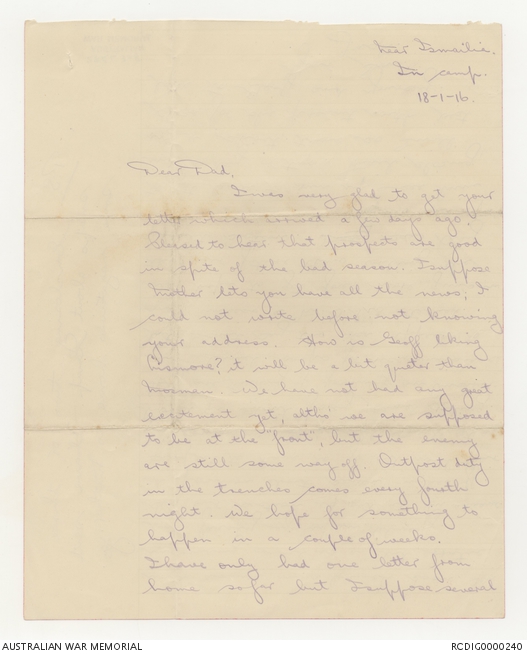 Near Ismailia.
In camp.
18-1-16.
Dear Dad,
I was very glad to get your
letter which arrived a few days ago.
Pleased to hear that prospects are good
in spite of the bad season. I suppose
Mother lets you have all the news; I
could not write before not knowing
your address. How is Geoff liking
Lismore? it will be a bit quieter than
Mosman. We have not had any great
excitement yet, altho' we are supposed
to be at the "front", but the enemy
are still some way off. Outpost duty
in the trenches comes every fourth
night. We hope for something to
happen in a couple of weeks.
I have only had one letter from
home so far but I suppose several
AUSTRALIAN WAR MEMORIAL
RCDIG0000240